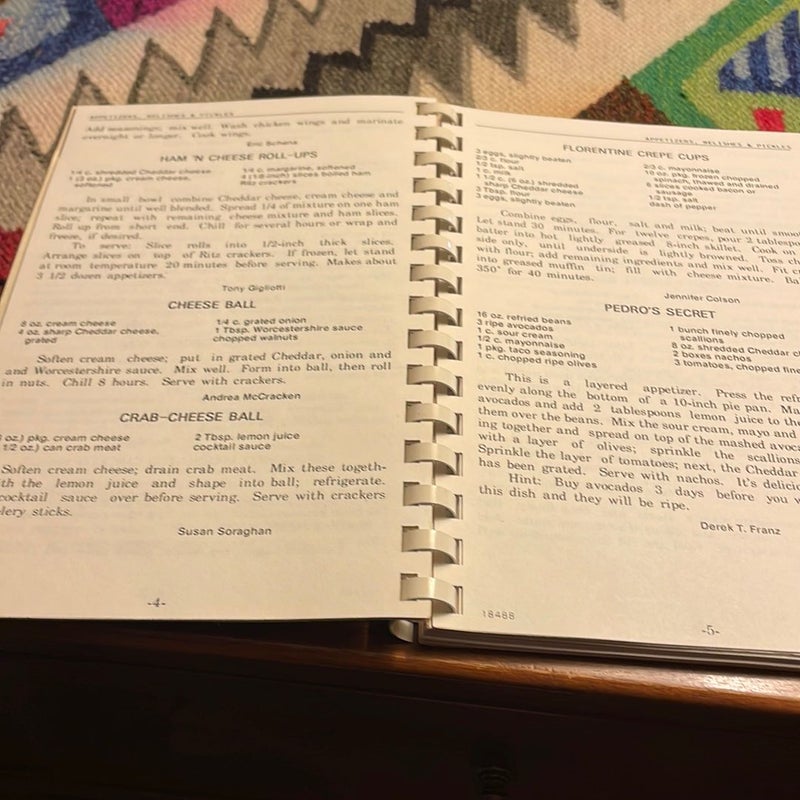 APPETIZERS, RELISHES & PICKLES
Add seasonings; mix well. Wash chicken wings and marinate
overnight or longer. Cook wings.
Eric Schena
HAM 'N CHEESE ROLL-UPS
1/4 c. shredded Cheddar cheese
1 (3 oz.) pkg. cream cheese,
softened
1/4 c. margarine, softened
slices boiled ham
Ritz crackers
In small bowl combine Cheddar cheese, cream cheese and
margarine until well blended. Spread 1/4 of mixture on one ham
slice; repeat with remaining cheese mixture and ham slices.
Roll up from short end. Chill for several hours or wrap and
freeze, if desired.
To serve: Slice rolls into 1/2-inch thick slices.
Arrange slices on top of Ritz crackers. If frozen, let stand
at room temperature 20 minutes before serving. Makes about
3 1/2 dozen appetizers.
Tony Gigliotti
CHEESE BALL
8 oz. cream cheese
4 oz. sharp Cheddar cheese,
grated
1/4 c. grated onion
1 Tbsp. Worcestershire sauce
chopped walnuts
Soften cream cheese; put in grated Cheddar, onion and
and Worcestershire sauce. Mix well. Form into ball, then roll
in nuts. Chill 8 hours. Serve with crackers.
Andrea McCracken
CRAB-CHEESE BALL
oz.) pkg. cream cheese
1/2 oz.) can crab meat
2 Tbsp. lemon juice
cocktail sauce
Soften cream cheese; drain crab meat. Mix these togeth-
th the lemon juice and shape into ball; refrigerate.
cocktail sauce over before serving. Serve with crackers
lery sticks.
Susan Soraghan
-4-
APPETIZERS, RELISHES & PICKLES
FLORENTINE CREPE CUPS
3 eggs, slightly beaten
2/3 c. flour
1/2 tsp. salt
1 c. milk
1 1/2 c. (6 oz.) shredded
sharp Cheddar cheese
3 Tbsp. flour
3 eggs, slightly beaten
2/3 c. mayonnaise
10 oz. pkg. frozen chopped
spinach, thawed and drained
6 slices cooked bacon or
sausage
1/2 tsp. salt
dash of pepper
Combine eggs, flour, salt and milk; beat until smoo
Let stand 30 minutes. For twelve crepes, pour 2 tablespo
batter into hot lightly greased 8-inch skillet. Cook on
side only, until underside is lightly browned. Toss ch
with flour; add remaining ingredients and mix well. Fit cr
into greased muffin tin; fill with cheese mixture. Ba
350° for 40 minutes.
Jennifer Colson
PEDRO'S SECRET
16 oz. refried beans
3 ripe avocados
1 c. sour cream
1/2 c. mayonnaise
1 pkg. taco seasoning
1 c. chopped ripe olives
1 bunch finely chopped
scallions
8 oz. shredded Cheddar ch
2 boxes nachos
3 tomatoes, chopped fine
This is a layered appetizer. Press the refr
evenly along the bottom of a 10-inch pie pan. Ma
avocados and add 2 tablespoons lemon juice to the
them over the beans. Mix the sour cream, mayo and
ing together and spread on top of the mashed avoca
with a layer of olives; sprinkle the scallions
Sprinkle the layer of tomatoes; next, the Cheddar
has been grated. Serve with nachos. It's delicio
Hint: Buy avocados 3 days before you w
this dish and they will be ripe.
Derek T. Franz
18488
-5-